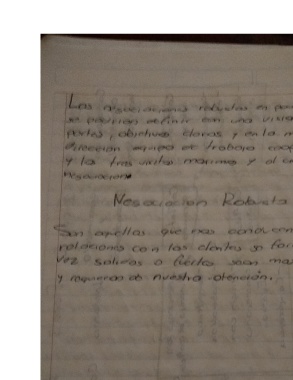 Las negociaciones robustas en
se podrian definir con una
partes, objetivos claros y en la m
Dirección equipo de trabajo coop
y la tres visitas maximas y al
negociacion
Negociacion Robusta
Son aquellas que nos conducen
relaciones con los clientes se for
vez solidas o fuertes sean mas
y requieran de nuestra atención.